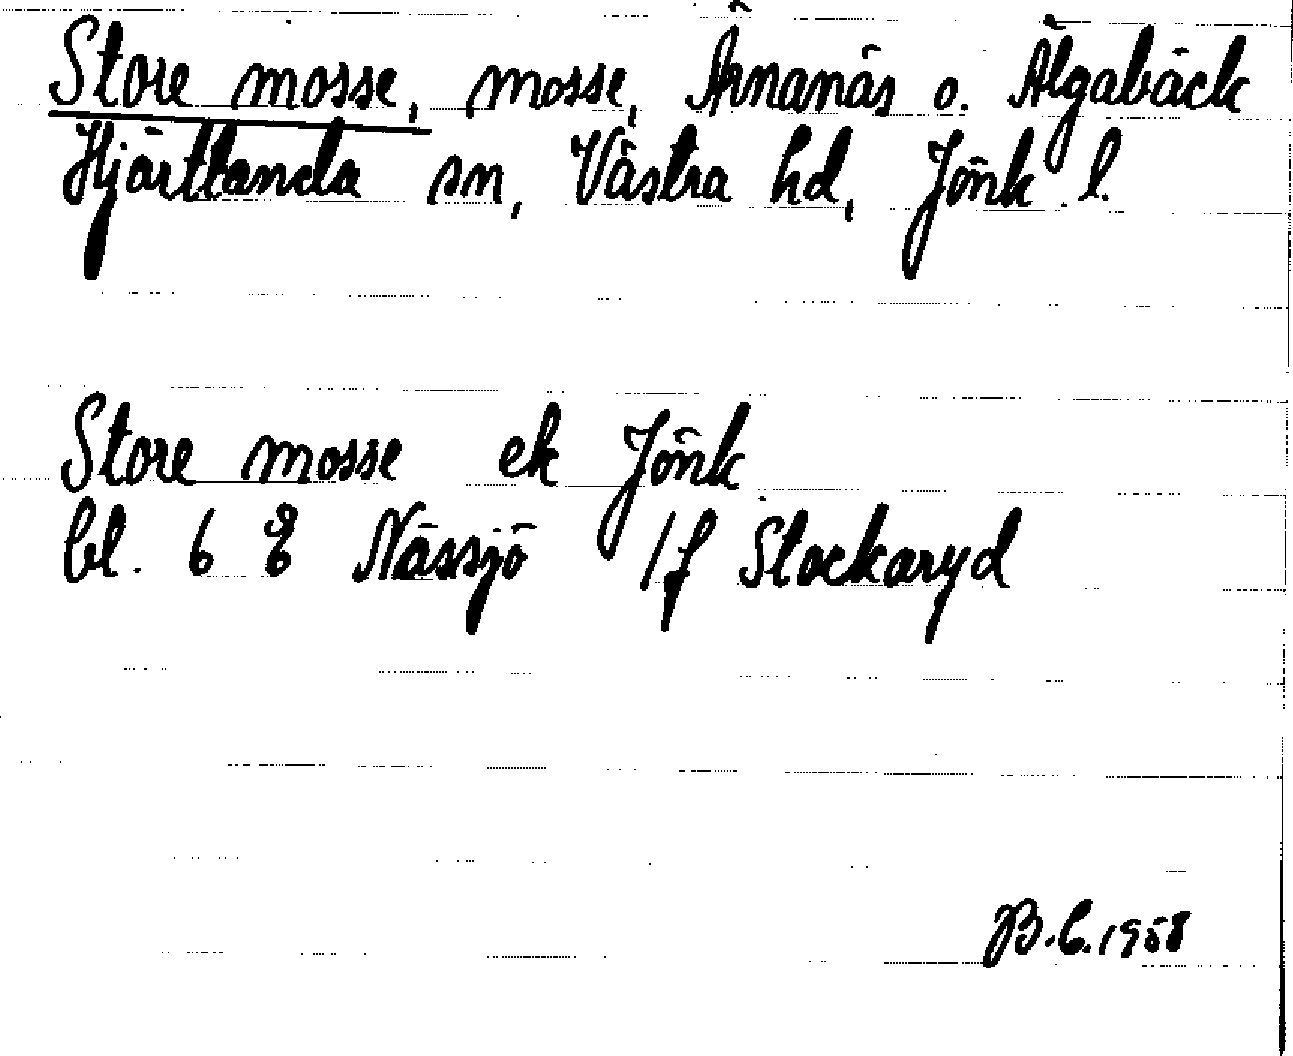 Store mosse, mosse, Ärnanäs o. Älgabäck
Hjärtlanda sn, Västra hd, Jönk l.
Store mosse ek Jönk
bl. 6 E Nässjö /f Stockaryd
B.C. 1958